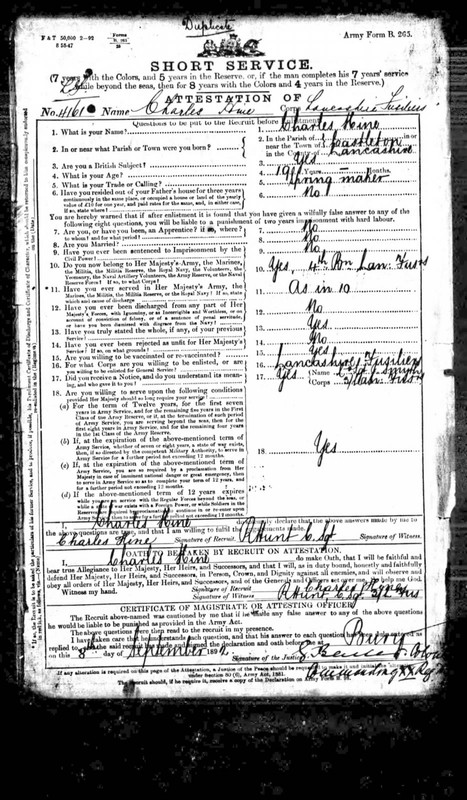 Duplicate
F & T 50,000 2–92
Forms
B. 265
Army Form B. 265.
SHORT SERVICE.
(7 years with the Colors, and 5 years in the Reserve, or, if the man completes his 7 years' service
while beyond the seas, then for 8 years with the Colors and 4 years in the Reserve.)
ATTESTATION OF
No. 4161 Name Charles Hine Corps Lancashire Fusiliers
Questions to be put to the Recruit before Enlistment.
1. What is your Name? 1. Charles Hine
2. In or near what Parish or Town were you born? 2. In the Parish of
near the Town of Castleton
in the County of Lancashire
3. Are you a British Subject? 3. Yes
4. What is your Age? 4. 19 Years Months.
5. What is your Trade or Calling? 5. Spring maker
6. Have you resided out of your Father's house for three years
continuously in the same place, or occupied a house or land of the yearly
value of £10 for one year, and paid rates for the same, and, in either case,
if so, state where? 6. No
You are hereby warned that if after enlistment it is found that you have given a wilfully false answer to any of the
following eight questions, you will be liable to a punishment of two years imprisonment with hard labour.
7. Are you, or have you been, an Apprentice? if so, where?
to whom? and for what period? 7. No
8. Are you Married? 8. No
9. Have you ever been sentenced to Imprisonment by the
Civil Power? 9. No
10. Do you now belong to Her Majesty's Army, the Marines,
the Militia, the Militia Reserve, the Royal Navy, the Volunteers, the
Yeomanry, the Naval Artillery Volunteers, the Army Reserve, or the Naval
Reserve Force? If so, to what Corps? 10. Yes, 4th Bn Lan. Fusrs
* 11. Have you ever served in Her Majesty's Army, the
Marines, the Militia, the Militia Reserve, or the Royal Navy? If so, state
which and cause of discharge 11. As in 10
12. Have you ever been discharged from any part of Her
Majesty's Forces, with Ignominy, or as Incorrigible and Worthless, or on
account of conviction of felony, or of a sentence of penal servitude,
or have you been dismissed with disgrace from the Navy? 12. No
13. Have you truly stated the whole, if any, of your previous
Service? 13. Yes
14. Have you ever been rejected as unfit for Her Majesty's
Service? If so, on what grounds? 14. No
15. Are you willing to be vaccinated or re-vaccinated? 15. Yes
16. For what Corps are you willing to be enlisted, or are
you willing to be enlisted for General Service? 16. Lancashire Fusiliers
17. Did you receive a Notice, and do you understand its meaning,
and who gave it to you? 17. Yes Name Smyth
Corps Lan. Fusrs
18. Are you willing to serve upon the following conditions
provided Her Majesty should so long require your service?
(a) For the term of Twelve years, for the first seven
years in Army Service, and for the remaining five years in the First
Class of the Army Reserve, or if, at the termination of such period
of Army Service, you are serving beyond the seas, then for the
first eight years in Army Service, and for the remaining four years
in the 1st Class of the Army Reserve.
(b) If, at the expiration of the above-mentioned term of
Army Service, whether of seven or eight years, a state of war exists,
then, if so directed by the competent Military Authority, to serve in
Army Service for a further period not exceeding 12 months.
(c) If, at the expiration of the above-mentioned term of
Army Service, you are so required by a proclamation from Her
Majesty in case of imminent national danger or great emergency, then
to serve in Army Service so as to complete your term of 12 years, and
for a further period not exceeding 12 months.
(d) If the above-mentioned term of 12 years expires
while you are on service with the Regular Forces beyond the seas, or
while a state of war exists with a Foreign Power, or while Soldiers in the
18. Yes
I, Charles Hine do solemnly declare that the above answers made by me to
the above questions are true, and that I am willing to fulfil the engagements made.
Charles Hine Signature of Recruit. R Hunt C. Sgt Signature of Witness.
OATH TO BE TAKEN BY RECRUIT ON ATTESTATION.
I, Charles Hine do make Oath, that I will be faithful and
bear true Allegiance to Her Majesty, Her Heirs, and Successors, and that I will, as in duty bound, honestly and faithfully
defend Her Majesty, Her Heirs, and Successors, in Person, Crown, and Dignity against all enemies, and will observe and
obey all orders of Her Majesty, Her Heirs, and Successors, and of the Generals and Officers set over me. So help me God.
Witness my hand. Signature of Recruit Charles Hine
Signature of Witness R Hunt C. Sgt
CERTIFICATE OF MAGISTRATE OR ATTESTING OFFICER.
The Recruit above-named was cautioned by me that if he made any false answer to any of the above questions
he would be liable to be punished as provided in the Army Act.
The above questions were then read to the recruit in my presence.
I have taken care that he understands each question, and that his answer to each question has been duly entered as
replied to, and the said recruit has made and signed the declaration and oath before me at Bury
on this 8th day of November 1892.
Signature of the Justice
Commanding XX Regtl
If any alteration is required on this page of the Attestation, a Justice of the Peace should be requested to make it and initial the alteration
under Section 80 (6), Army Act, 1881.
The Recruit should, if he require it, receive a copy of the Declaration on Army Form